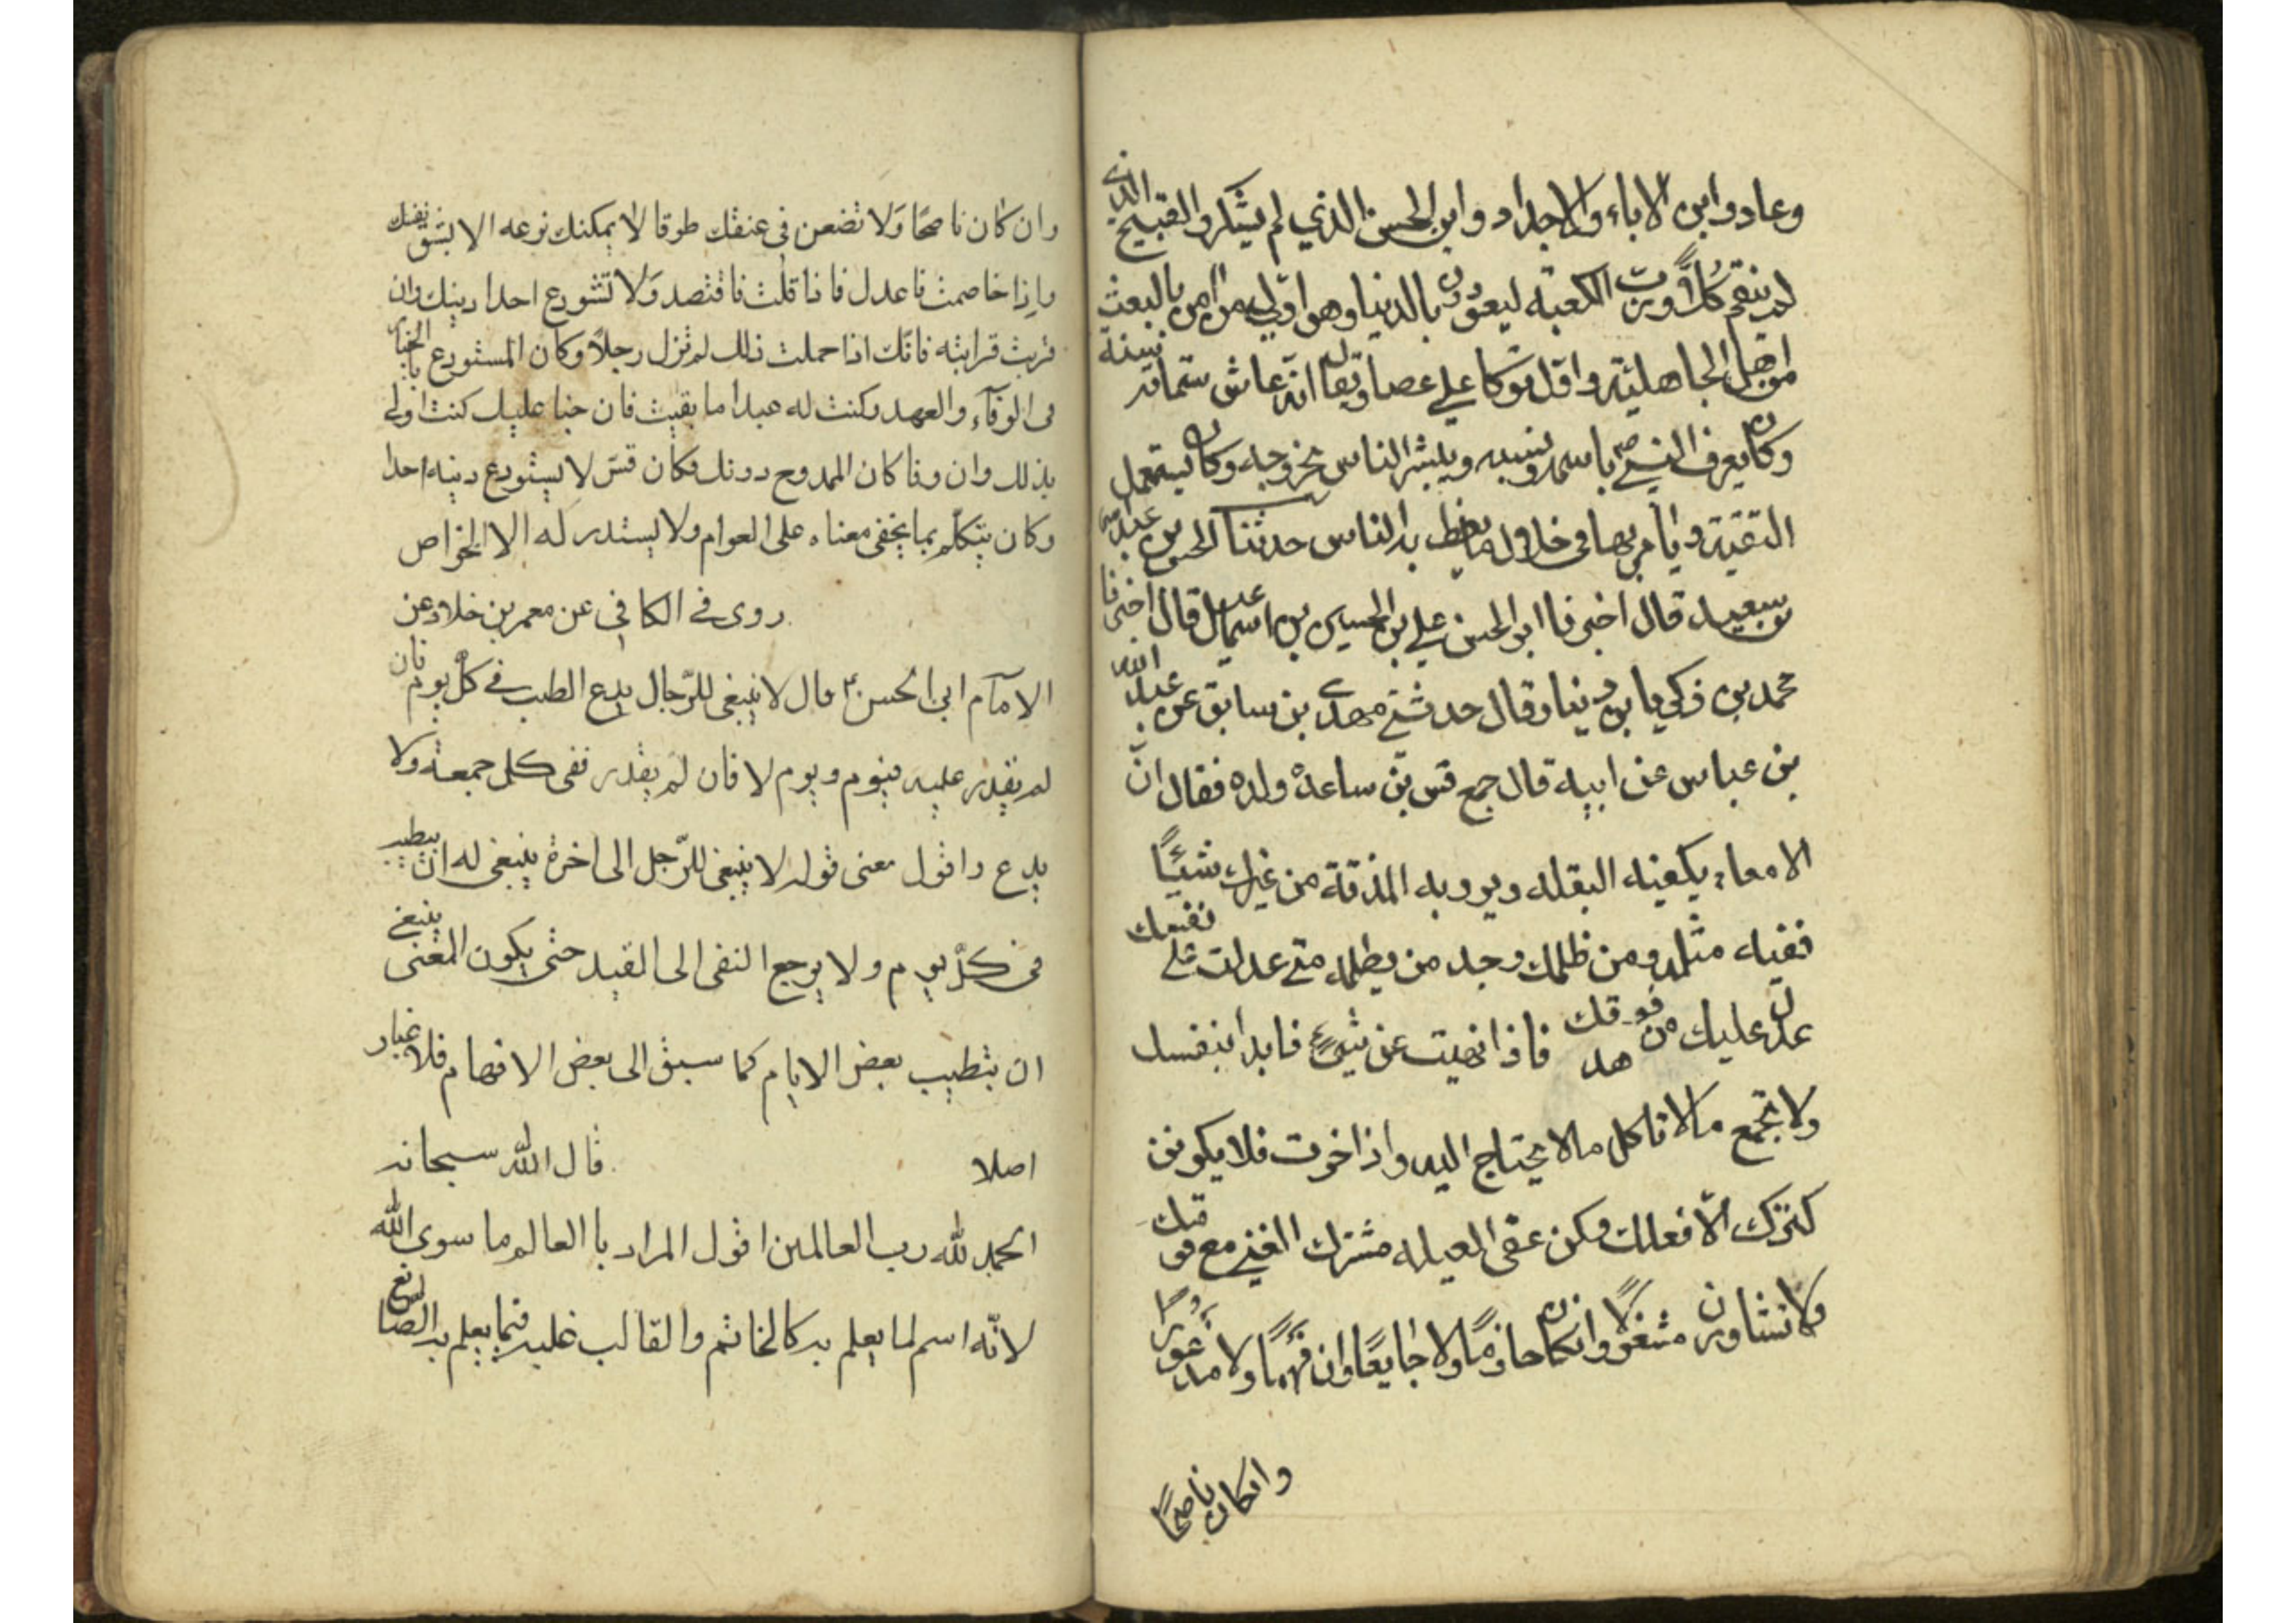 وعاد واين الاباء والاجداد واين الحسن الذي لم يشكر والقبيح الذي
لم ينقم كلا ورب الكعبة ليعودن بالدنيا وهو اول من امن بالبعث
من اهل الجاهلية واول من توكا على عصا ويقال انه عاش ستماية سنة
وكان يعرف النبي ص باسمه ونسبه ويبشر الناس بخروجه وكان يستعمل
التقية ويامر بها في خلال ما يعظ به الناس حدثنا الحسن بن عبد الله
بن سعيد قال اخبرنا ابو الحسن علي بن الحسين بن اسمعيل قال اخبرنا
محمد بن زكريا بن دينار قال حدثني مهدي بن سابق عن عبد الله
بن عباس عن ابيه قال جمع قس بن ساعدة ولده فقال ان
الامعاء يكفيه البقله ويرويه المذقة من غيرك شيئًا
ففيه مثله ومن ظلمك وجد من يظلمه متى عدلت على نفسك
عدل عليك من فوقك فاذا نهيت عن شيء فابدا بنفسك
ولا تجمع مالا تاكل مالا يحتاج اليه واذا اخرت فلا يكونن
كنزك الا فعلك وكن عف العيله مشترك الغنى مع قومك
ولا تشاورن مشغولا وان كان حازمًا ولا جايعًا وان فهمًا ولا مذعورًا
وان كان ناصحًا
وان كان ناصحًا وَلا تضعن في عنقك طوقا لا يمكنك نزعه الا بشق نفسك
واذا خاصمت فاعدل فاذا قلت فاقتصد وَلا تستودع احدا دينك وان
قربت قرابته فانك اذا حملت ذلك لم تزل رجلاً وكان المستودع بالخيار
في الوفآء والعهد وكنت له عبدا ما بقيت فان جنا عليك كنت اولى
بذلك وان وفا كان الممدوح دونك فكان قس لا يستودع دينه احدا
وكان يتكلم بما يخفى معناه على العوام ولا يستدركه الا الخواص
روى في الكافي عن معمر بن خلاد عن
الامآم ابي الحسن ع قال لا ينبغي للرّجال يدع الطيب في كلّ يوم فان
لم يقدر عليه فيوم ويوم لا فان لم يقدر ففي كل جمعة ولا
يدع واقول معنى قوله لا ينبغي للرّجل الى اخرة ينبغي له ان يتطيب
في كلّ يوم ولا يرجع النفى الى القيد حتى يكون المعنى ينبغي
ان يتطيب بعض الايام كما سبق الى بعض الافهام فلا غبار
اصلا قال الله سبحانه
الحمد لله رب العالمين اقول المراد با العالم ما سوى الله
لانّه اسم لما يعلم به كالخاتم والقالب غلب فيما يعلم به الصانع